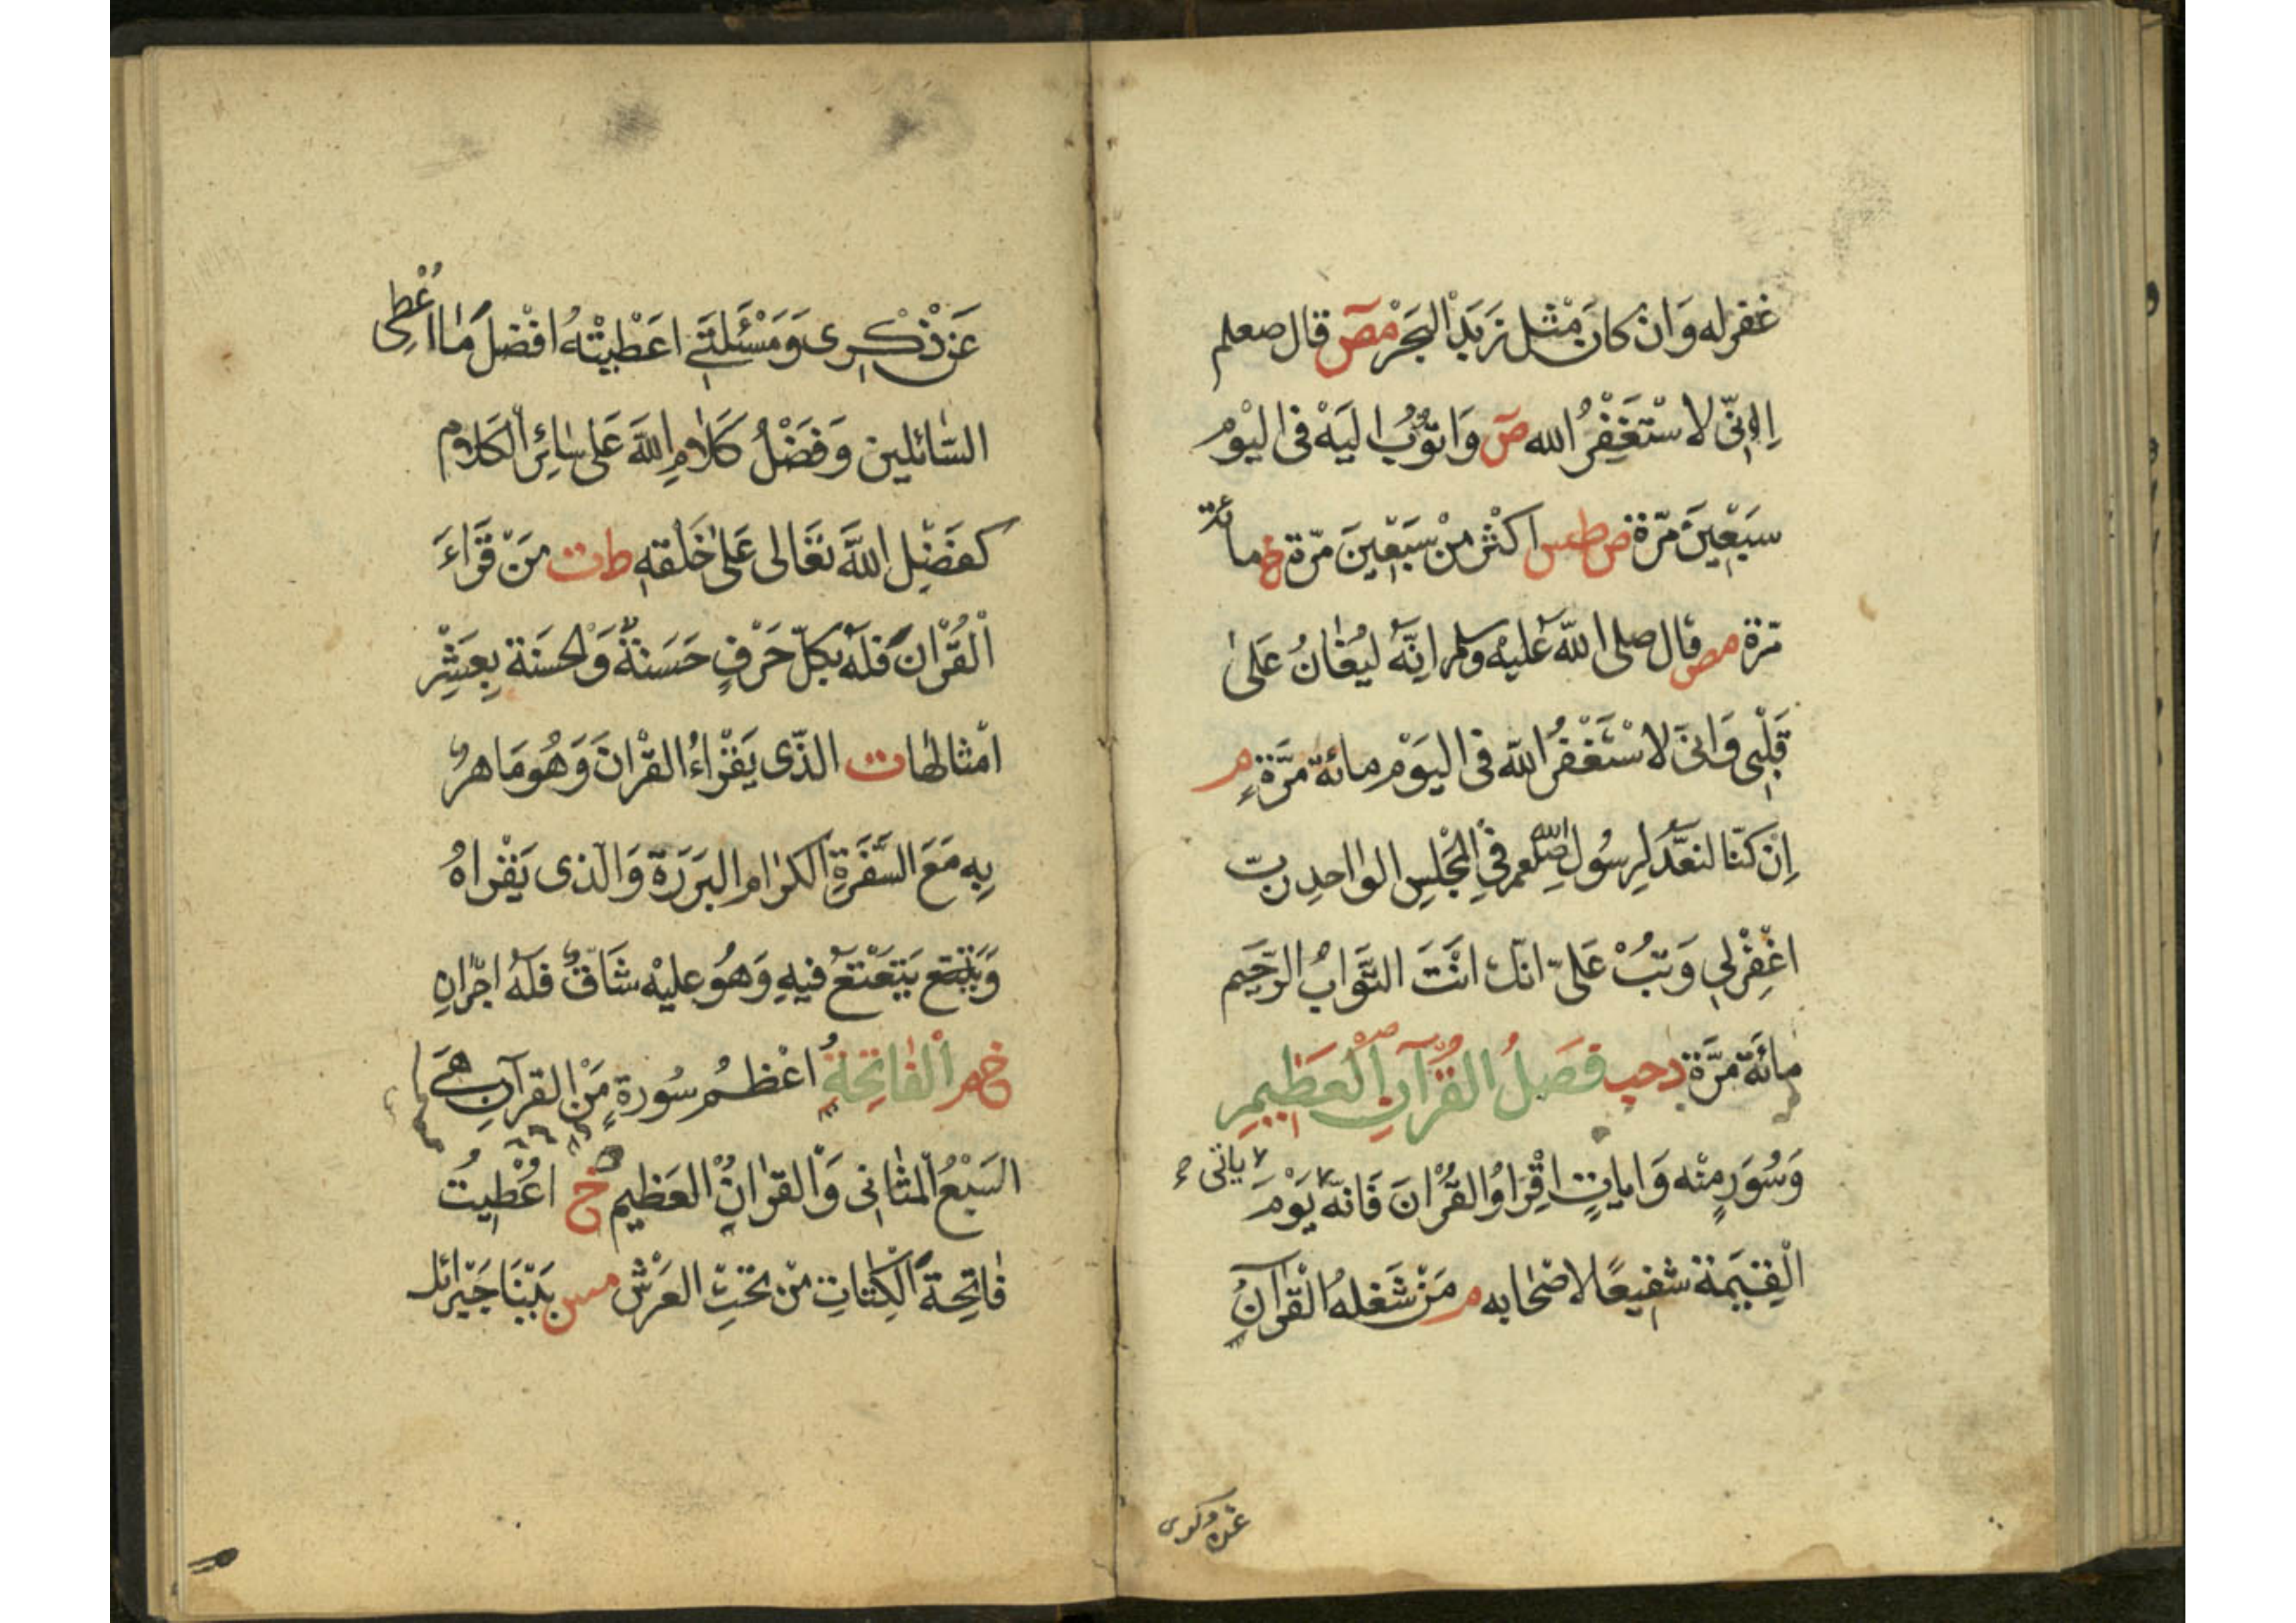 غفر له وَانْ كانَ مثْل زَبَدِ الْبَحْرْ مص قال صعلم
اِنِّى لاسْتَغْفِرُ الله ص وَاتوُبُ اليَهْ فى اليَوْم
سَبَعْينَ مَرّة ص طس اكثْر منْ سَبَعْينَ مَرّة خ مائة
مَرّة مص قال صلى اللّه عَليْه وسلم انِّهَ ليُغانُ عَلىٰ
قَلْبى وَانىّ لاسْتَغْفرُ اللّه فى اليَوْم مائة مَرَّةٍ م
اِنْ كنّا لنعَدُّ لِرسُول الله صلعم فىِ الْمَجْلِسِ الوٰاحدِ ربّ
اغْفِرْلىِ وَتبُْ عَلىّ انكّ انَتَ التَّوَابُ الرَّحَيم
مائَة مَرَّة د حب فَضلُ القُرآنِ الْعَظيمِ
وَسُوَرٍ منْه وَاياتٍ اقْرَاوُا القُرْانَ فَانهّ ياتى يَوْمَ
الْقِيَمٰة شفيعًا لاصْحابه م مَنْ شَغلهُ الْقرْآنُ
عن ذكرى
عَنْ ذْكْرِى وَمَسْئَلتَىِ اعَطْيتْهُ افْضلَ مَا اُعْطِى
السّائلين وَفَضْلُ كَلٰامِ اللّهَ عَلى سٰائِرْ الْكلام
كفَضْلِ اللّهَ تعَالى عَلىٰ خَلْقهِ ط ت مَنْ قَرَاءَ
الْقُرْان فلَهْ بكلّ حَرْفٍ حَسَنةٌ وَالحسَنة بِعَشْرِ
امْثالهٰا ت الذّى يَقْرَاءُ القرْانَ وَهُو مَاهرٌ
بِه مَعَ السَّفَرَةِ الكرٰام البَرَرَة وَالذى يَقْراهُ
وَيَتَتع يَتَعْتعُ فيهِ وَهُو عليْه شَاقٌ فلهُ اجْرانِ
خ م الْفٰاتِحَةُ اعْظمُ سُورةٍ مَنْ القرآن هَىَ
السَبْعُ الْمثٰانى وَالْقرٰانُ الْعَظيم خ اُعْطِيتُ
فٰاتِحةَ الْكِتٰابِ منْ تحْتِ العَرْش مس بَيْنَا جَبْرائل